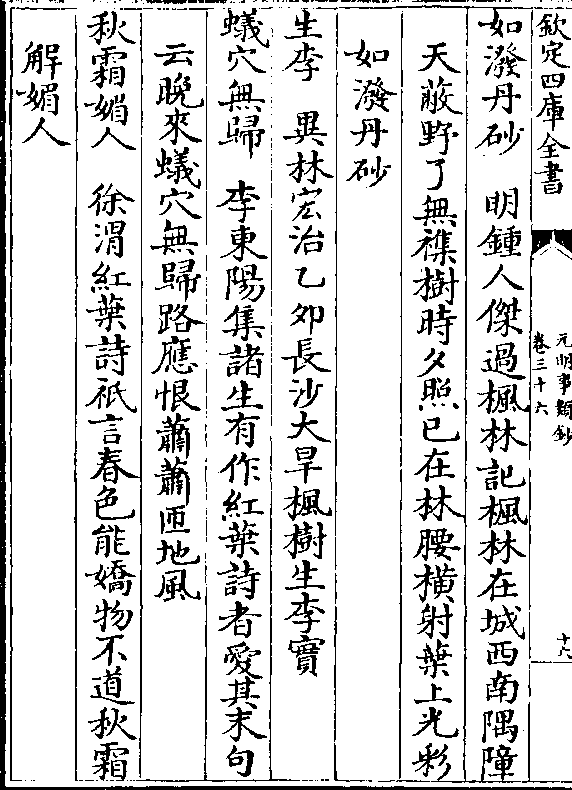 欽定四庫全書
元明事類鈔
卷三十六
十六
如潑丹砂　明鍾人傑過楓林記楓林在城西南隅障
天蔽野了無襍樹時夕照已在林腰橫射葉上光彩
如潑丹砂
生李　異林宏治乙夘長沙大旱楓樹生李實
蟻穴無歸　李東陽集諸生有作紅葉詩者愛其末句
云晚來蟻穴無歸路應恨蕭蕭匝地風
秋霜媚人　徐渭紅葉詩祇言春色能嬌物不道秋霜
解媚人